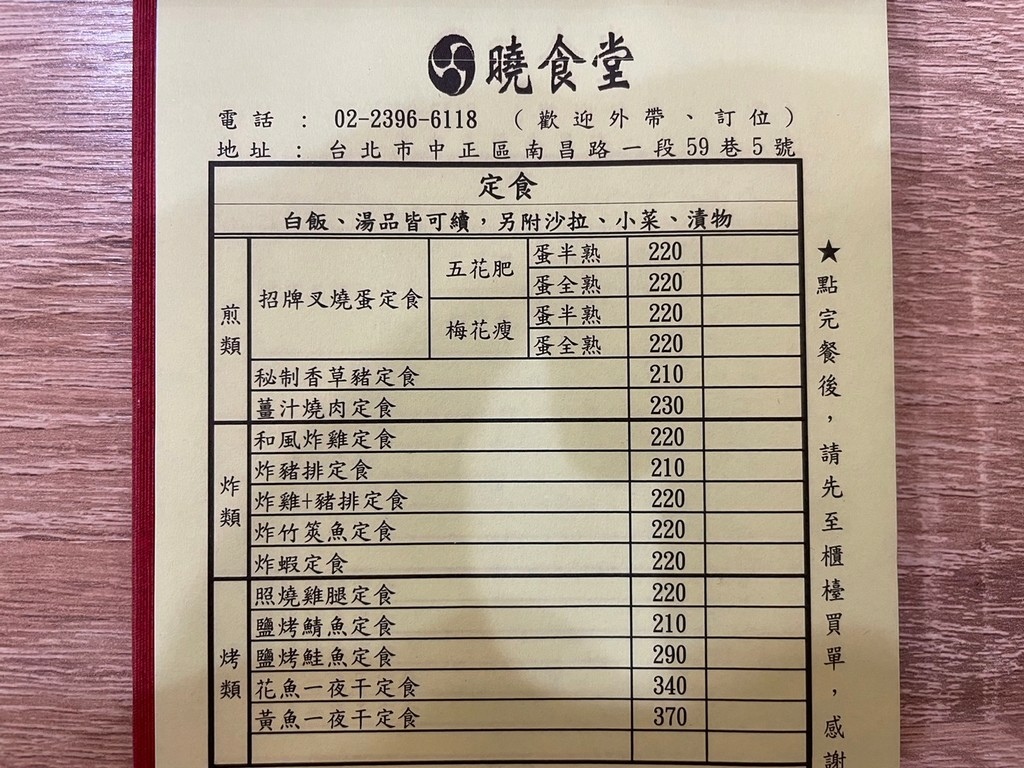 曉食堂
電話：02-2396-6118（歡迎外帶、訂位）
地址：台北市中正區南昌路一段59巷5號
定食
白飯、湯品皆可續，另附沙拉、小菜、漬物
煎類
招牌叉燒蛋定食
五花肥
蛋半熟 220
蛋全熟 220
梅花瘦
蛋半熟 220
蛋全熟 220
秘制香草豬定食 210
薑汁燒肉定食 230
炸類
和風炸雞定食 220
炸豬排定食 210
炸雞+豬排定食 220
炸竹筴魚定食 220
炸蝦定食 220
烤類
照燒雞腿定食 220
鹽烤鯖魚定食 210
鹽烤鮭魚定食 290
花魚一夜干定食 340
黃魚一夜干定食 370
★點完餐後，請先至櫃檯買單，感謝